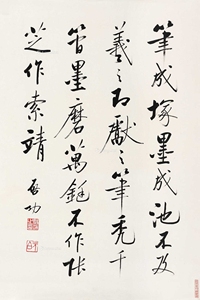 筆成塚墨成池不及
羲之即獻之筆禿千
管墨磨萬鋌不作張
芝作索靖
啟功